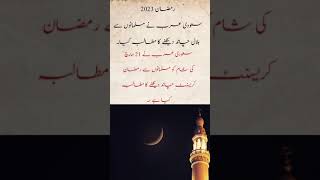 رمضان 2023
سعودی عرب نے مسلمانوں سے
ہلال چاند دیکھنے کا مطالبہ کیا۔
سعودی عرب نے 21 مارچ
کی شام کو مسلمانوں سے رمضان
کریسنٹ چاند دیکھنے کا مطالبہ
کیا ہے۔